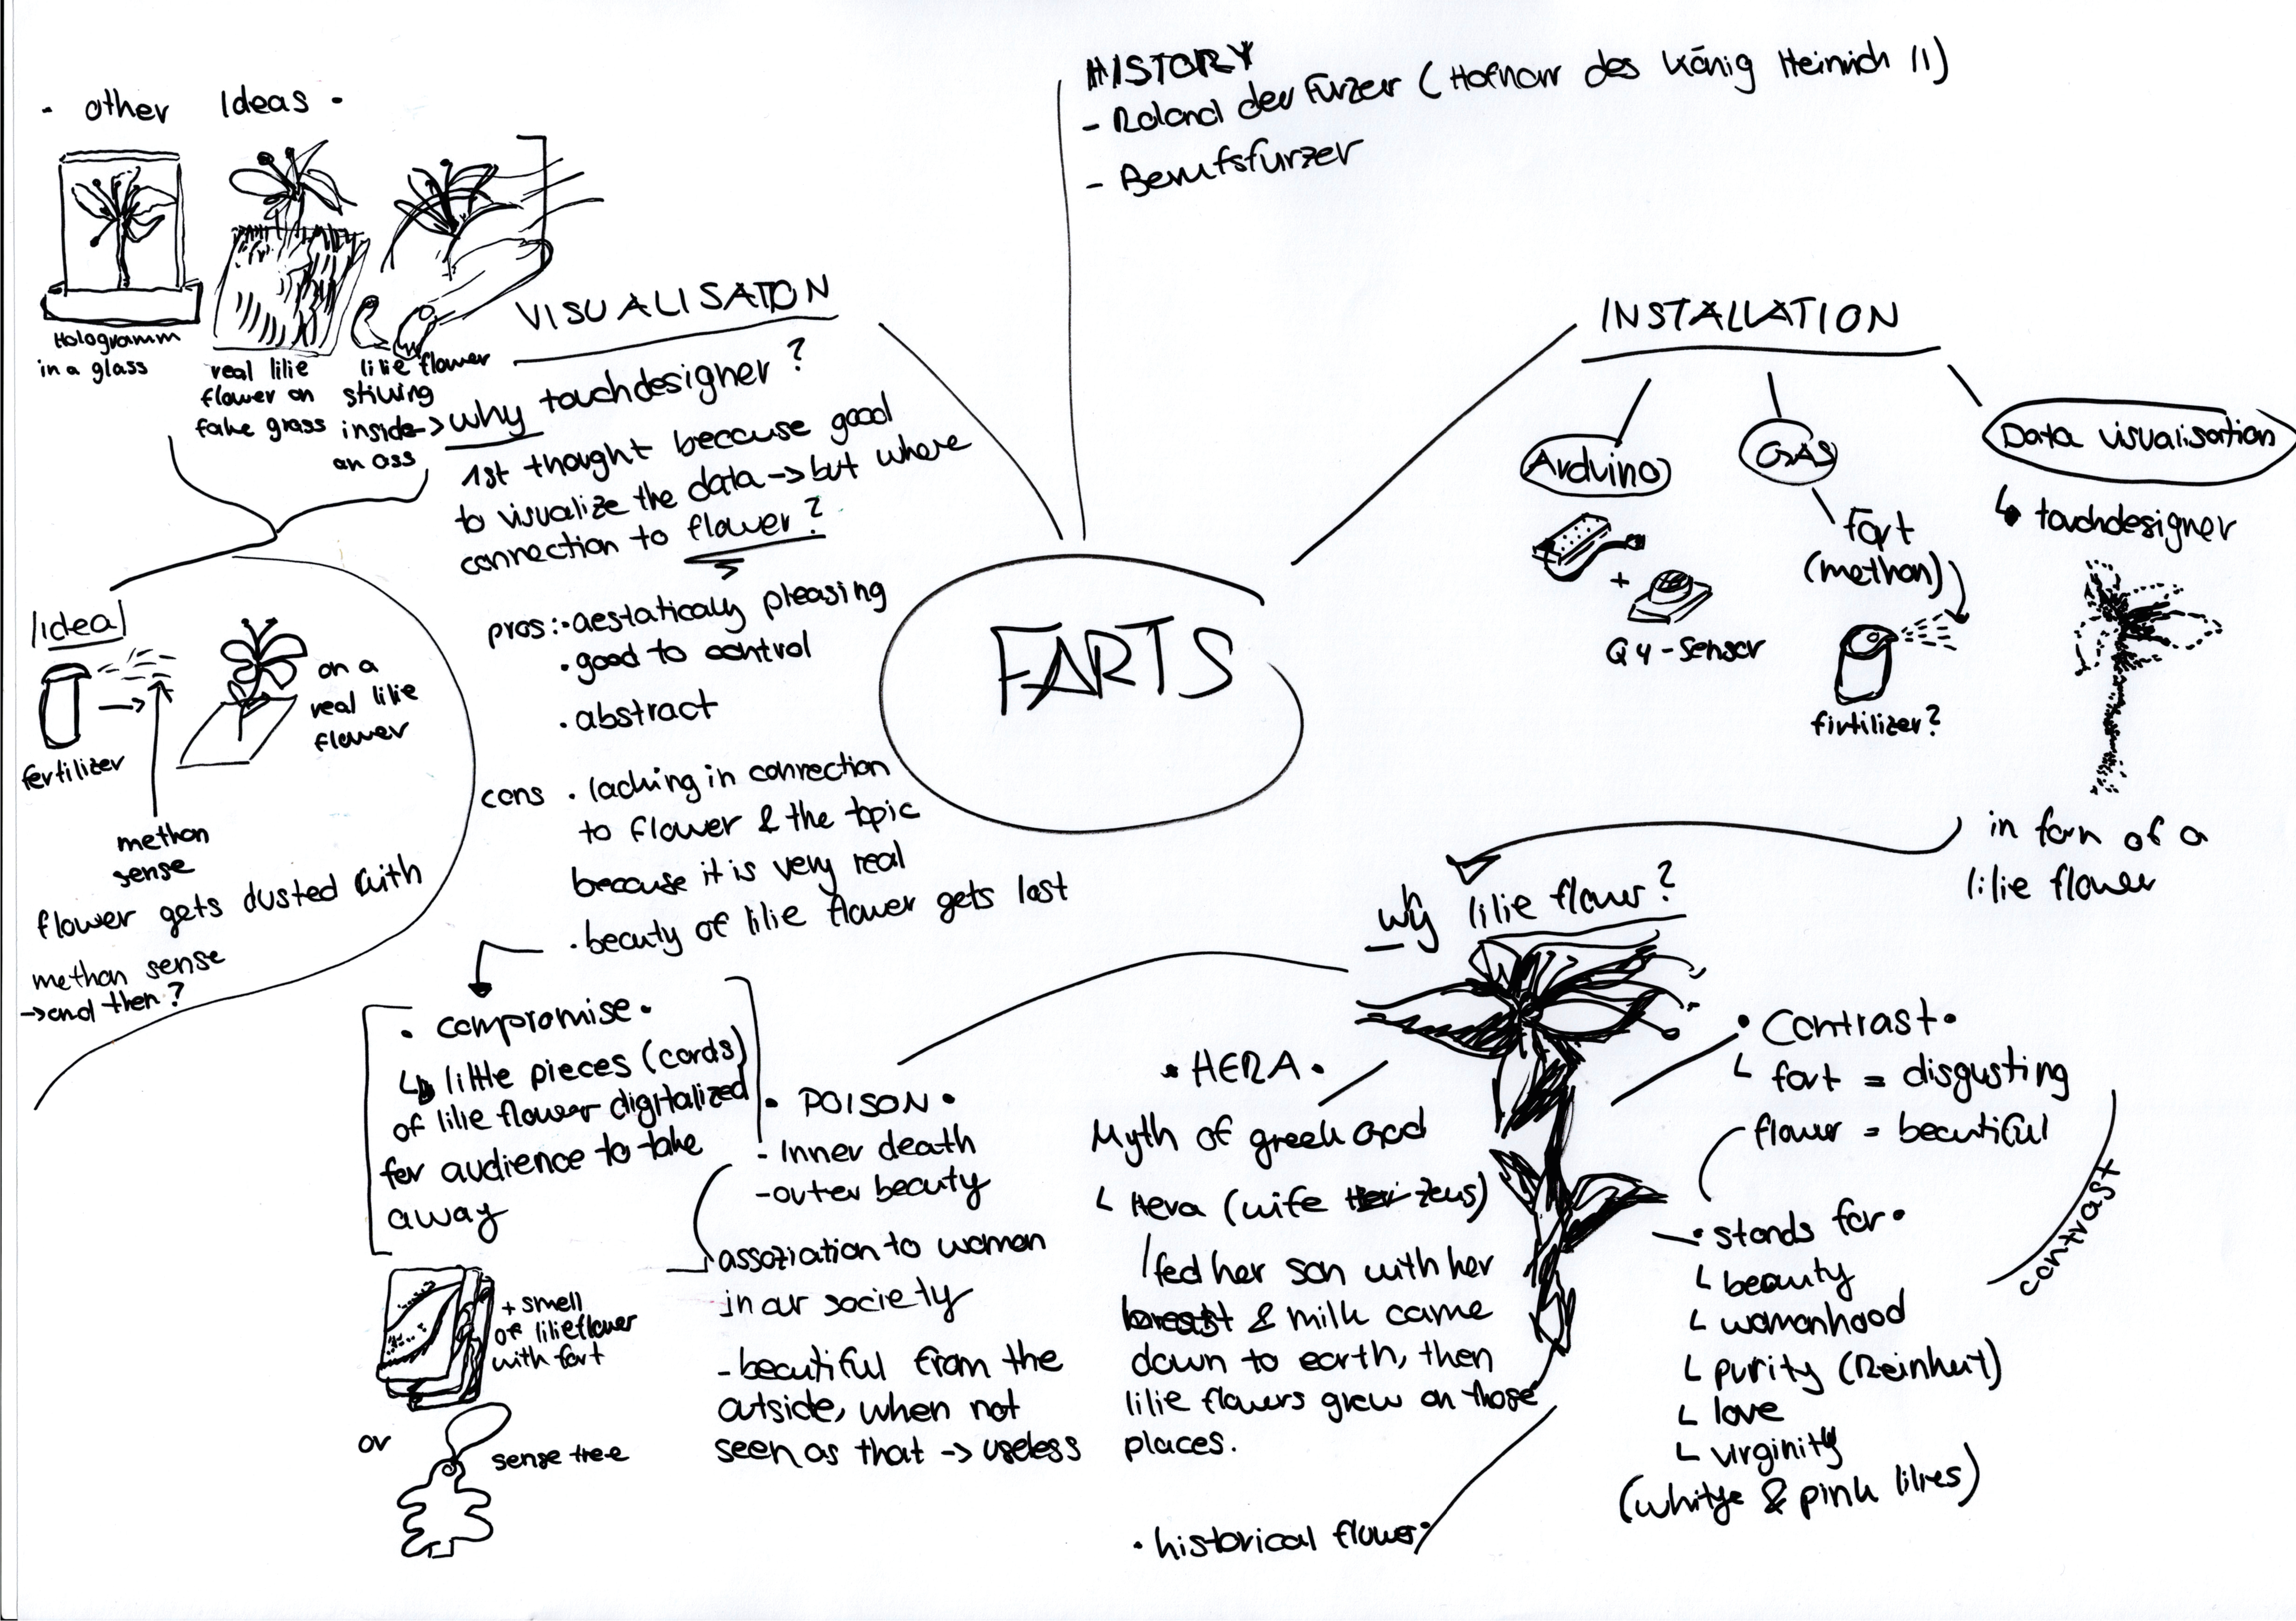 HISTORY
- Roland der Furzer (Hofnarr des König Heinrich II)
- Berufsfurzer
- other Ideas -
Hologramm
in a glass
real lilie
flower on
fake grass
lilie flower
inside
an ass
VISUALISATON
-> why touchdesigner?
1st thought because good
to visualize the data -> but where
connection to flower?
pros: • aestaticaly pleasing
• good to control
• abstract
cons • lacking in connection
to flower & the topic
because it is very real
• beauty of lilie flower gets lost
Idea
fertilizer
on a
real lilie
flower
methan
sense
flower gets dusted with
methan sense
-> and then?
• compromise •
↳ little pieces (cards)
of lilie flower digitalized
for audience to take
away
+ smell
of lilieflower
with fart
or
sense tree
FARTS
INSTALLATION
Arduino
+
Q4-Sensor
GAS
fart
(methan)
firtilizer?
Data visualisation
↳ touchdesigner
in form of a
lilie flower
why lilie flower?
• POISON •
- Inner death
- outer beauty
assoziation to woman
in our society
- beautiful from the
outside, when not
seen as that -> useless
• HERA •
Myth of greek God
↳ Hera (wife Zeus)
fed her son with her
breast & milk came
down to earth, then
lilie flowers grew on those
places.
• historical flower •
• Contrast •
↳ fart = disgusting
flower = beautiful
contrast
• stands for •
↳ beauty
↳ womanhood
↳ purity (Reinheit)
↳ love
↳ virginity
(whitye & pink lilies)